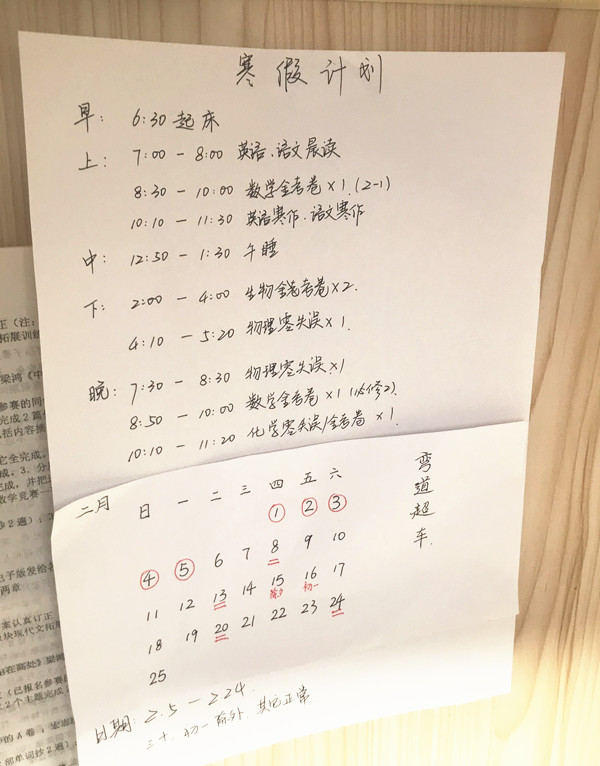 寒假计划
早: 6:30 起床
上: 7:00 - 8:00 英语、语文晨读
8:30 - 10:00 数学金考卷×1 (2-1)
10:10 - 11:30 英语寒作、语文寒作
中: 12:50 - 1:30 午睡
下: 2:00 - 4:00 生物金考卷×2.
4:10 - 5:20 物理零失误×1
晚: 7:30 - 8:30 物理零失误×1
8:50 - 10:00 数学金考卷×1 (必修2)
10:10 - 11:20 化学零失误/金考卷 ×1.
二月 日 一 二 三 四 五 六
① ② ③
④ ⑤ 6 7 8 9 10
11 12 13 14 15 16 17
除夕 初一
18 19 20 21 22 23 24
25
弯道超车.
日期: 2.5 - 2.24.
三十、初一除外, 其它正常
正(注:
拓展训练
梁鸿《中
参赛的同
完成2篇
括内容摘
它全完成,
成, 3. 分
成, 并把
数学竞赛一
抄2遍);
电子版发给名
两章
案认真订正
块现代文拓
在高处》梁鸿
(已报名参赛的
2个主题完成
的A卷;
单词抄2遍)